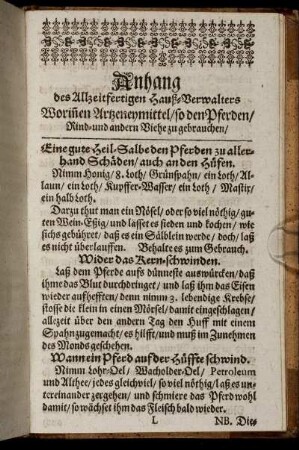 Anhang
des Allzeitfertigen Hauß-Verwalters
Woriñen Artzeneymittel/ so den Pferden/
Rind- und andern Viehe zu gebrauchen/
Eine gute Heil-Salbe den Pferden zu aller-
hand Schäden/ auch an den Hüfen.
Nimm Honig/ 8. Loth/ Grünspahn/ ein Loth/ Al-
laun/ ein Loth/ Kupffer-Wasser/ ein Loth / Mastix/
ein halb Loth.
Darzu thut man ein Nösel/ oder so viel nöthig/ gu-
ten Wein-Eßig/ und lasset es sieden und kochen/ wie
sichs gebühret/ daß es ein Sälblein werde/ doch/ laß
es nicht überlauffen. Behalte es zum Gebrauch.
Wider das Kern-schwinden.
Laß dem Pferde aufs dünneste auswürcken/ daß
ihme das Blut durchdringet/ und laß ihm das Eisen
wieder aufhefften/ denn nimm 3. lebendige Krebse/
stosse die klein in einen Mörsel/ damit eingeschlagen/
allezeit über den andern Tag den Huff mit einem
Spahn zugemacht/ es hilfft/ und muß im Zunehmen
des Monds geschehen.
Wann ein Pferd auf der Hüffte schwind.
Nimm Lohr-Oel/ Wacholder-Oel/ Petroleum
und Althee/ jedes gleich viel/ so viel nöthig/ laß es un-
tereinander zergehen/ und schmiere das Pferd wohl
damit/ so wächset ihm das Fleisch bald wieder.
L NB. Die-